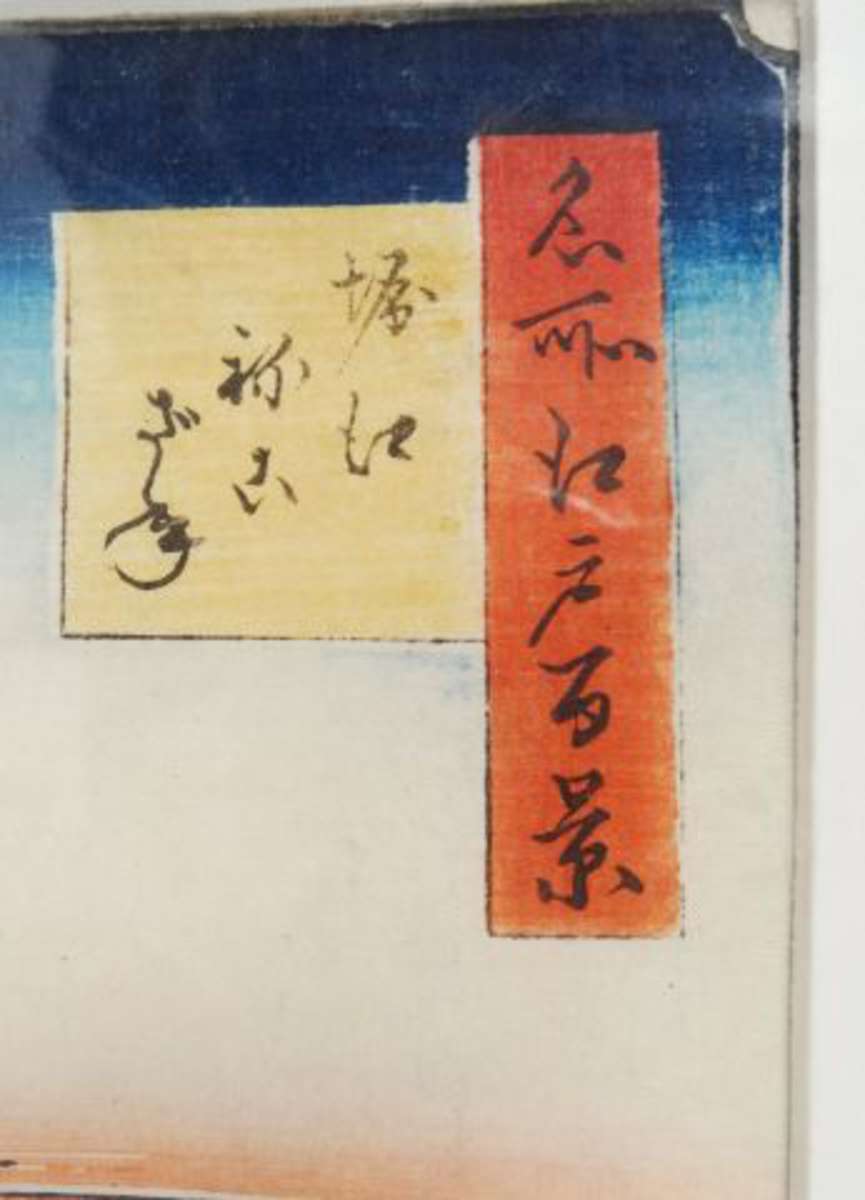 名所江戸百景
堀江
祢こ
ざ年